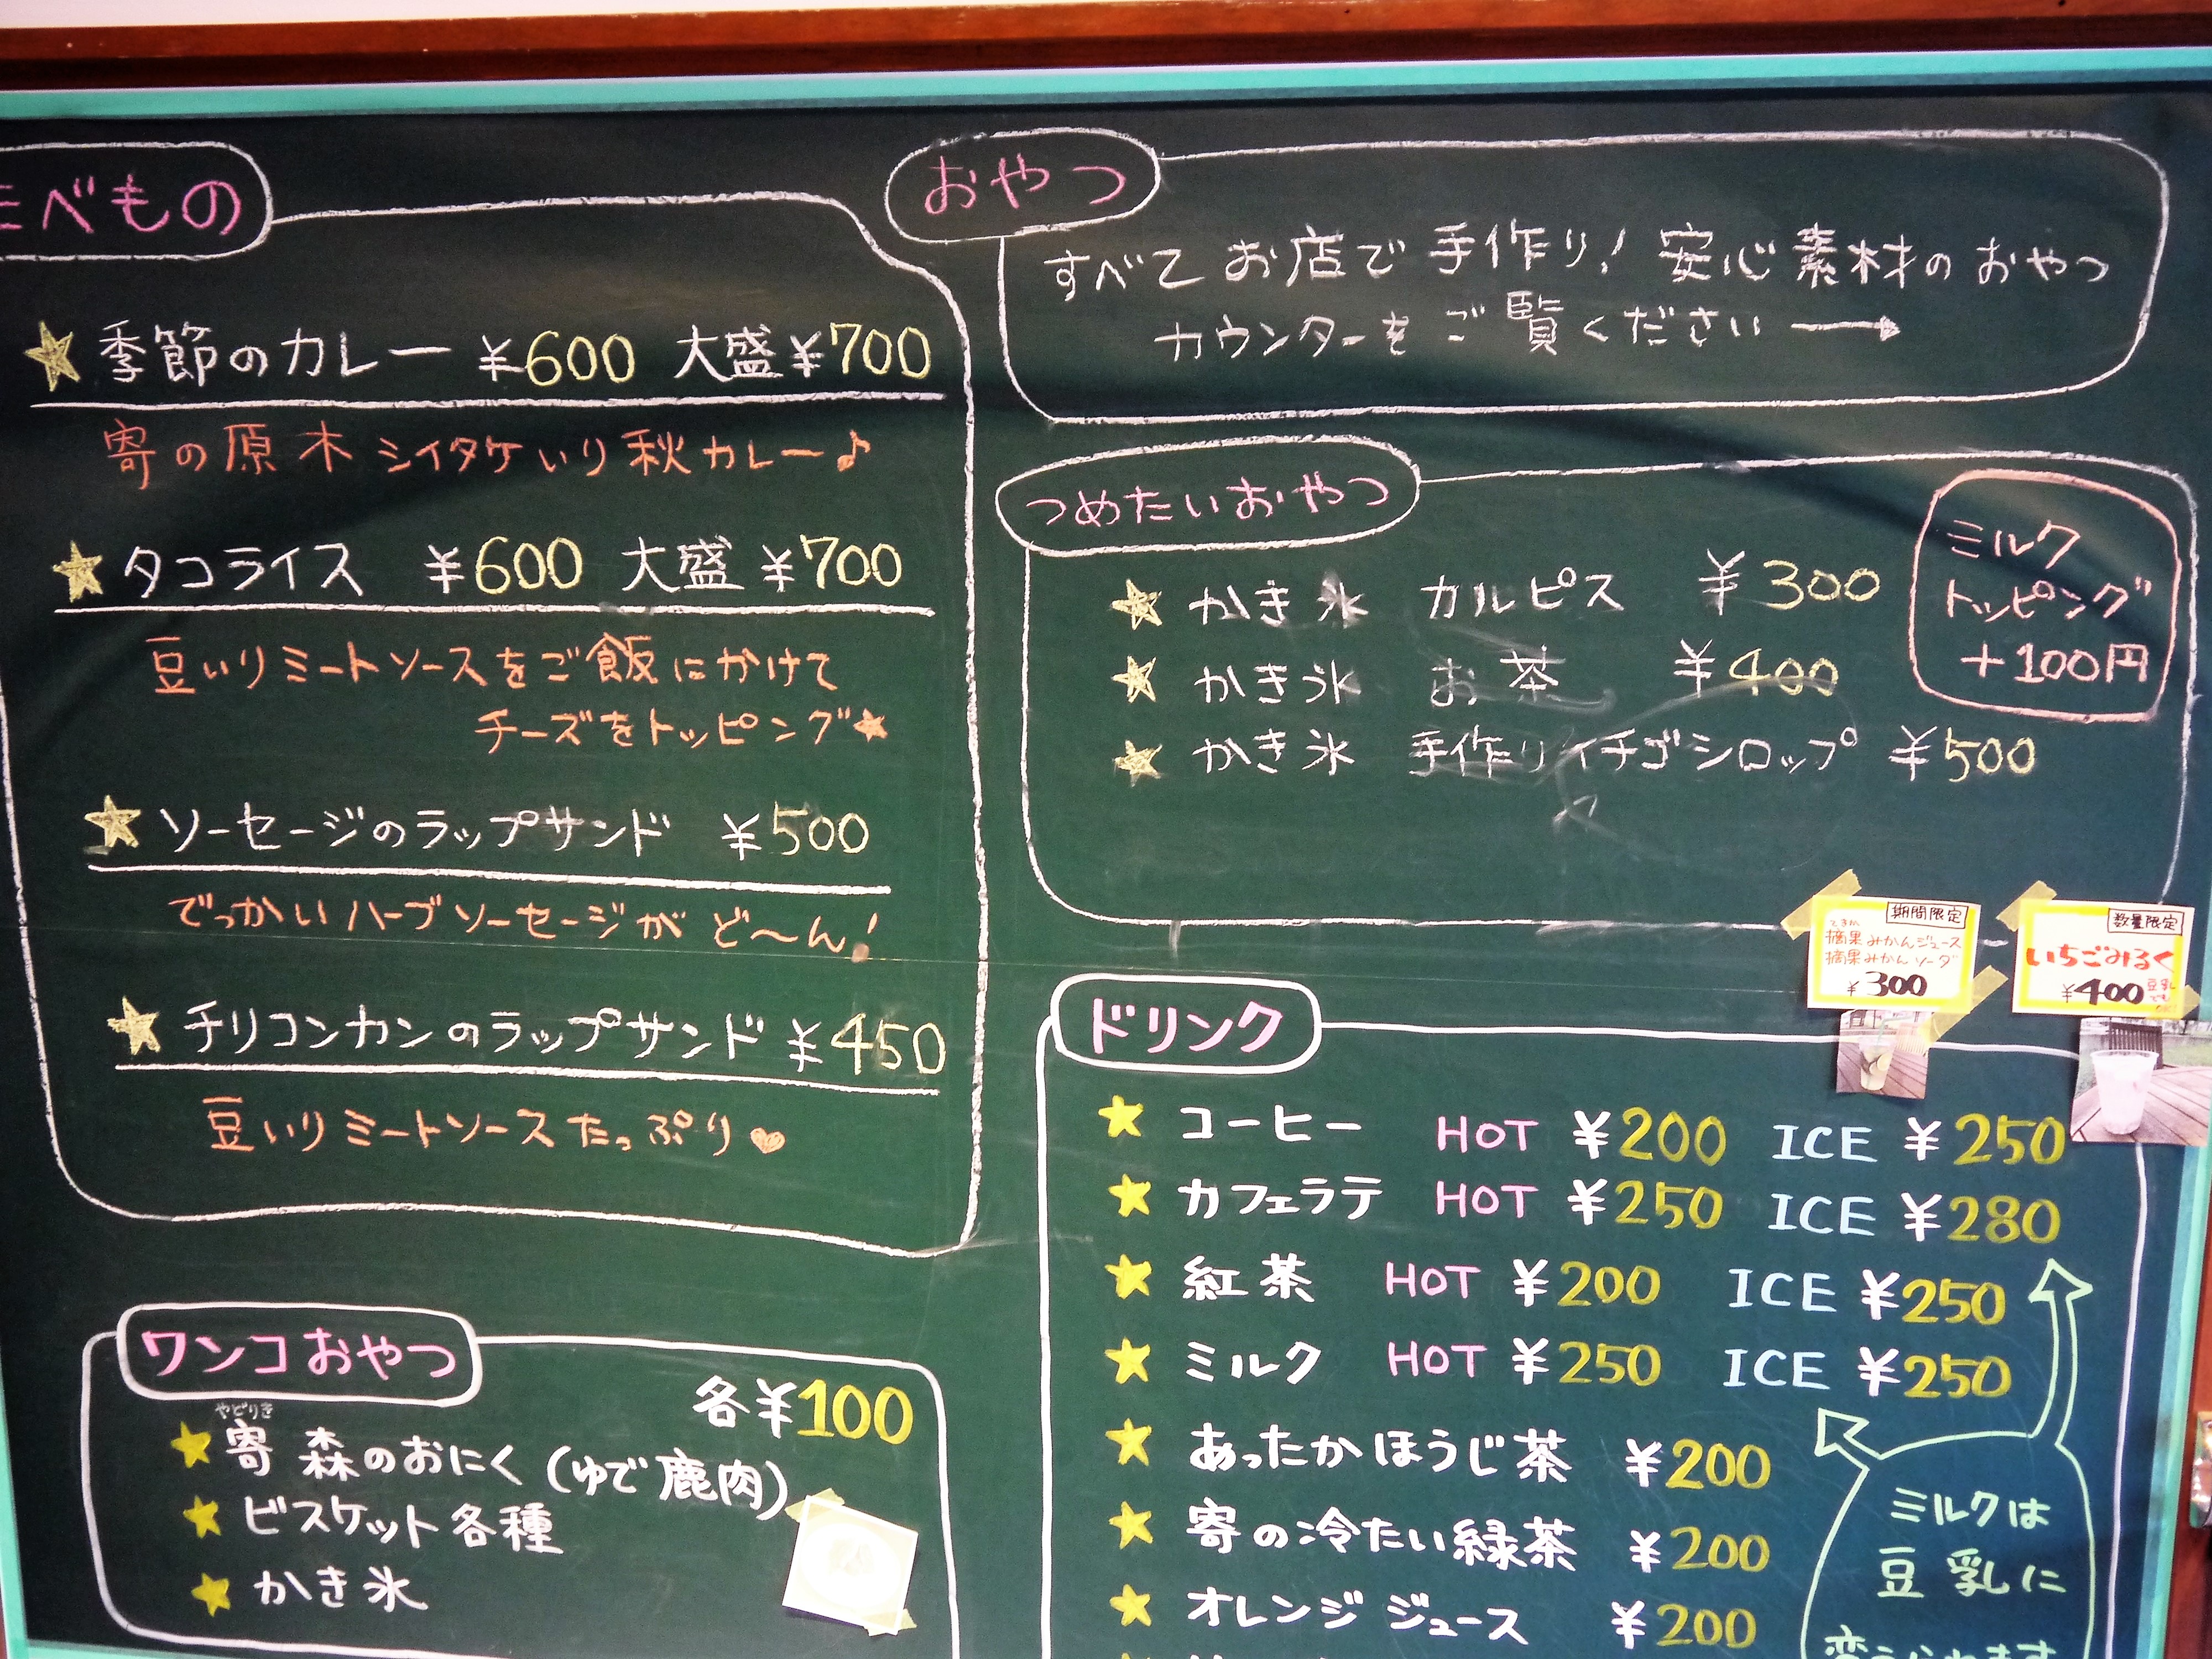 たべもの
季節のカレー ¥600 大盛¥700
寄の原木シイタケいり秋カレー♪
タコライス ¥600 大盛¥700
豆いりミートソースをご飯にかけて
チーズをトッピング★
ソーセージのラップサンド ¥500
でっかいハーブソーセージがど〜ん!
チリコンカンのラップサンド ¥450
豆いりミートソースたっぷり♥
ワンコおやつ
各¥100
やどりき
★寄 森のおにく(ゆで鹿肉)
★ビスケット各種
★かき氷
おやつ
すべてお店で手作り!安心素材のおやつ
カウンターをご覧ください→
つめたいおやつ
★かき氷 カルピス ¥300
★かき氷 お茶 ¥400
★かき氷 手作りイチゴシロップ ¥500
ミルク
トッピング
+100円
期間限定
摘果みかんジュース
摘果みかんソーダ
¥300
数量限定
いちごみるく
¥400
ドリンク
★コーヒー HOT ¥200 ICE ¥250
★カフェラテ HOT ¥250 ICE ¥280
★紅茶 HOT ¥200 ICE ¥250
★ミルク HOT ¥250 ICE ¥250
★あったかほうじ茶 ¥200
★寄の冷たい緑茶 ¥200
★オレンジジュース ¥200
ミルクは
豆乳に
変えられます